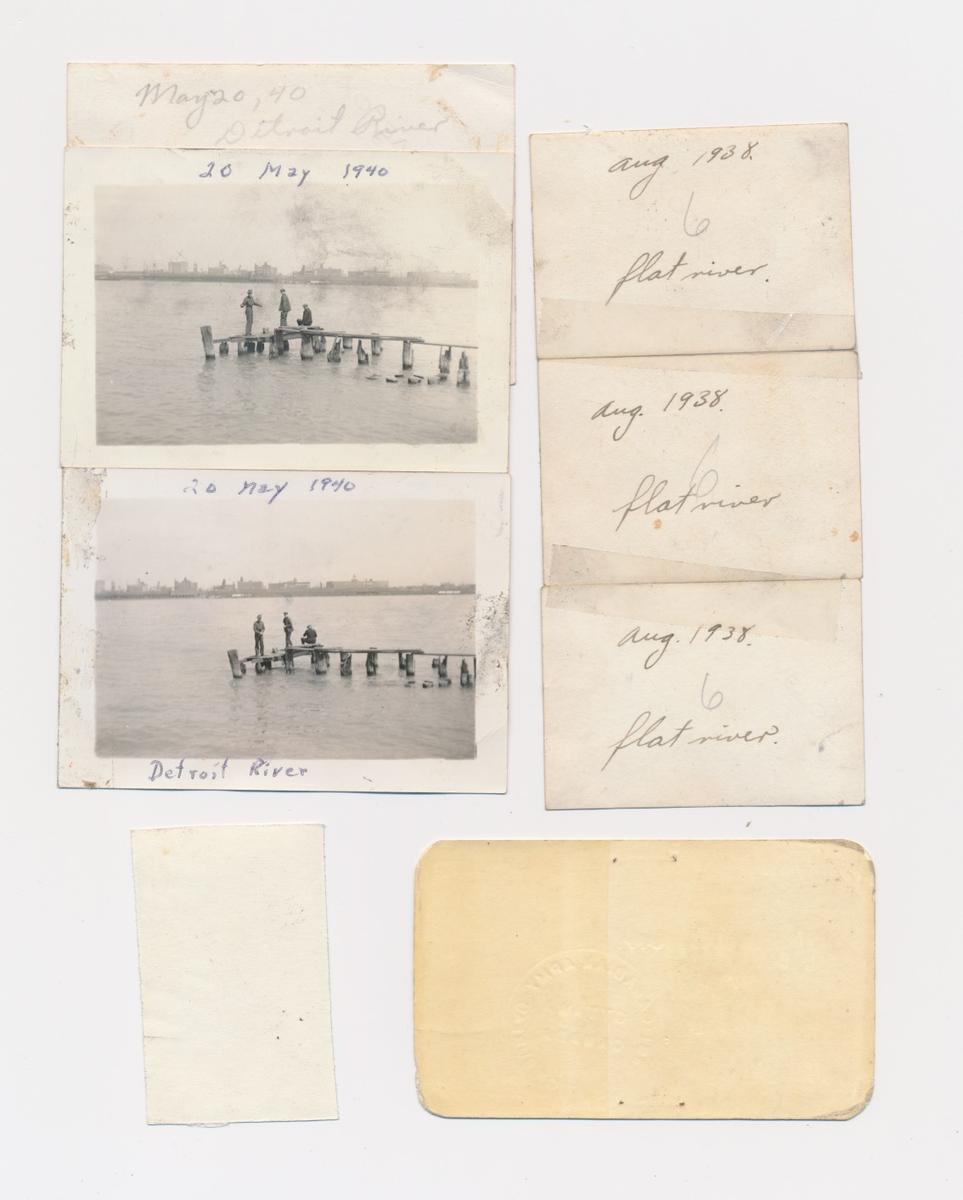 May 20, 40
Detroit River
20 May 1940
20 May 1940
Detroit River
aug 1938.
6
flat river.
aug. 1938.
6
flat river
aug. 1938.
6
flat river.